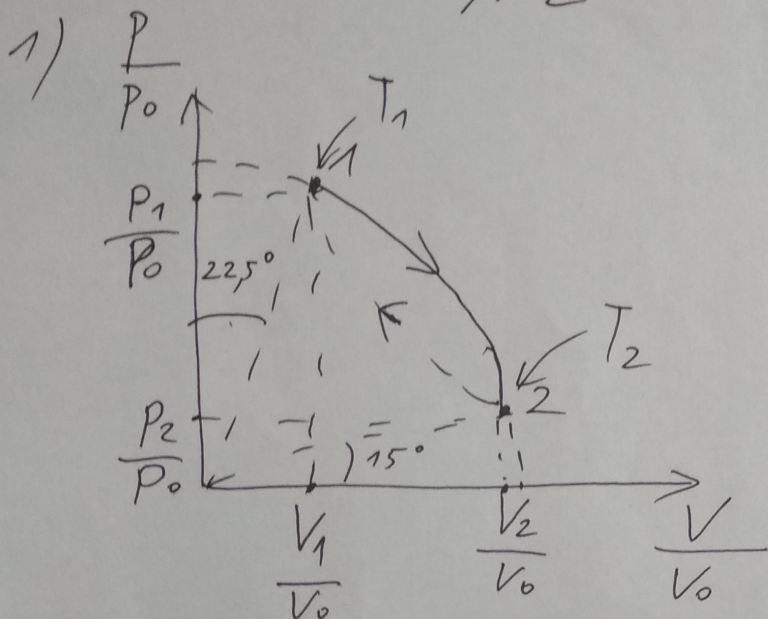 1)
P
P₀
T₁
1
P₁
P₀
22,5°
T₂
2
P₂
P₀
15°
V₁
V₀
V₂
V₀
V
V₀